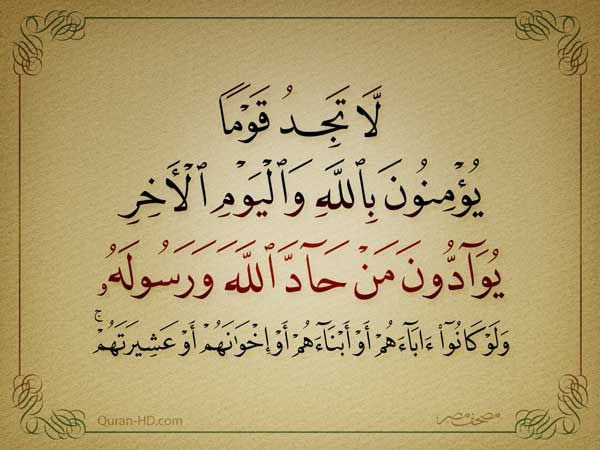 لَّا تَجِدُ قَوْمًا
يُؤْمِنُونَ بِٱللَّهِ وَٱلْيَوْمِ ٱلْأَخِرِ
يُوَآدُّونَ مَنْ حَآدَّ ٱللَّهَ وَرَسُولَهُۥ
وَلَوْ كَانُوٓا۟ ءَابَآءَهُمْ أَوْ أَبْنَآءَهُمْ أَوْ إِخْوَٰنَهُمْ أَوْ عَشِيرَتَهُمْ ۚ
Quran-HD.com
مصحف مصر